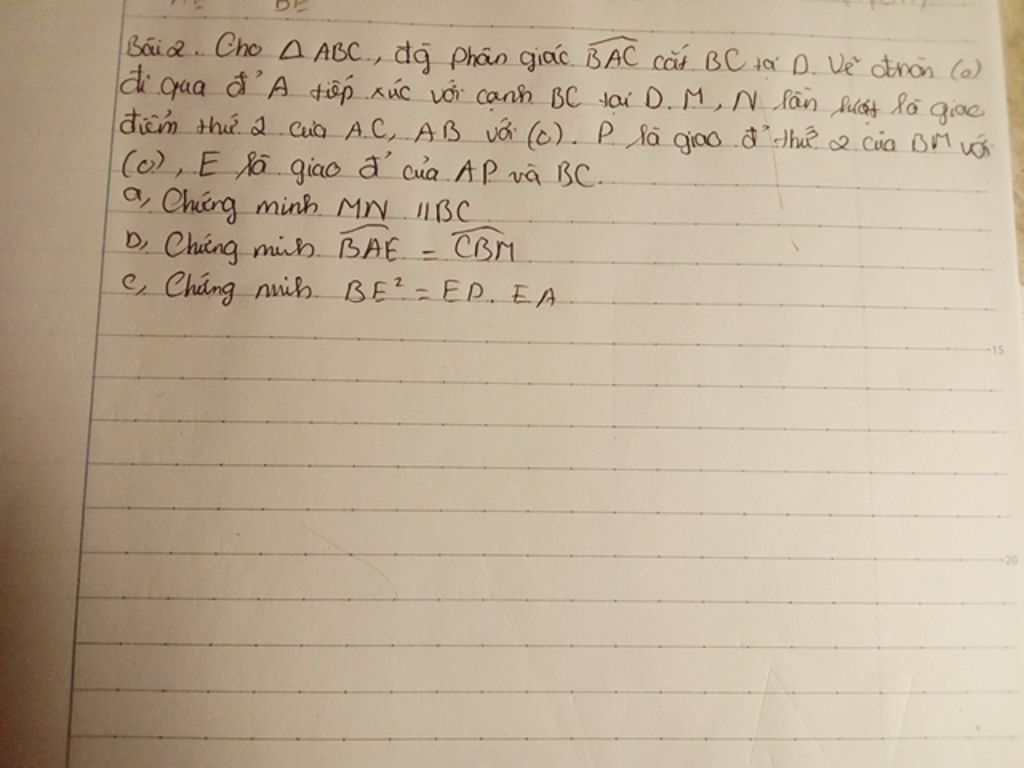 Bài 2. Cho △ ABC, đg phân giác BAC cắt BC tại D. Vẽ đtròn (O)
đi qua đ' A tiếp xúc với cạnh BC tại D. M, N lần lượt là giao
điểm thứ 2 của AC, AB với (O). P là giao đ' thứ 2 của BM với
(O), E là giao đ' của AP và BC.
a, Chứng minh MN // BC
b, Chứng minh BAE = CBM
c, Chứng minh BE² = EP. EA
15
20